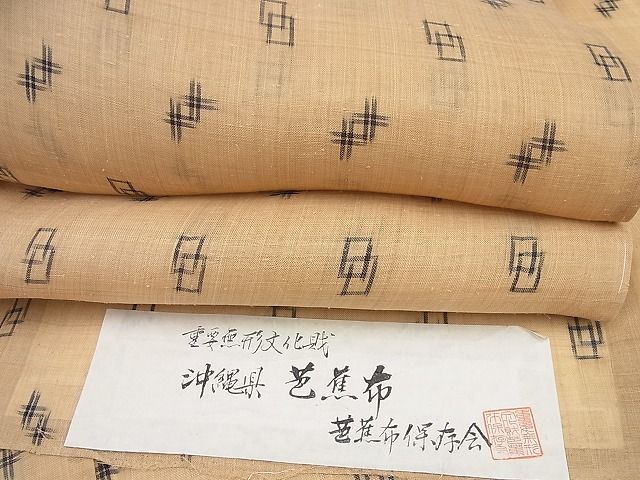 重要無形文化財
沖縄県 芭蕉布
芭蕉布保存会